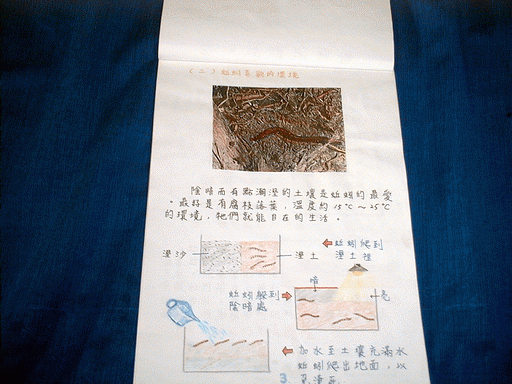 (二)蚯蚓喜歡的環境
陰暗而有點潮溼的土壤是蚯蚓的最愛
。最好是有腐枝落葉,溫度約15℃~25℃
的環境,牠們就能自在的生活。
溼沙
溼土
蚯蚓爬到
溼土裡
蚯蚓躲到
陰暗處
暗
亮
加水至土壤充滿水
蚯蚓爬出地面,以
3